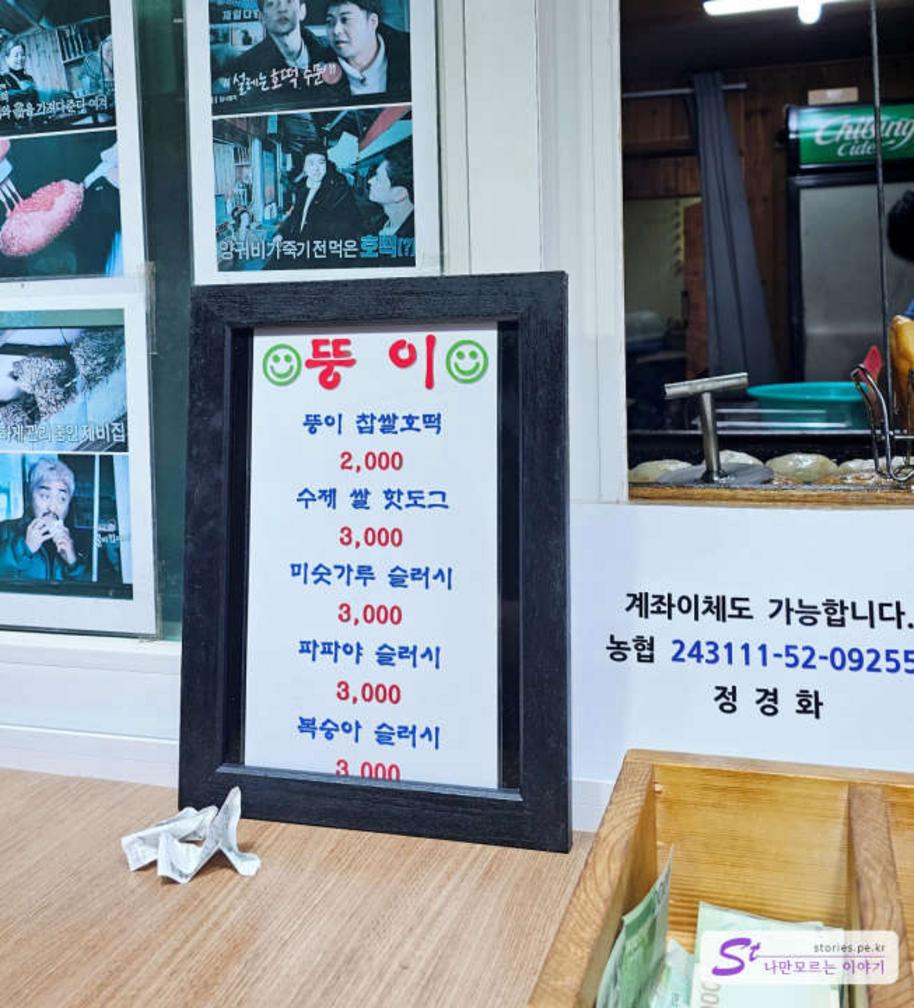 "설레는 호떡 주문"
양귀비가 죽기 전 먹은 호떡(?)
관리 중인 제비집
Chilsung
Cider
뚱이
뚱이 찹쌀호떡
2,000
수제 쌀 핫도그
3,000
미숫가루 슬러시
3,000
파파야 슬러시
3,000
복숭아 슬러시
3,000
계좌이체도 가능합니다.
농협 243111-52-09255
정경화
St
stories.pe.kr
나만모르는 이야기